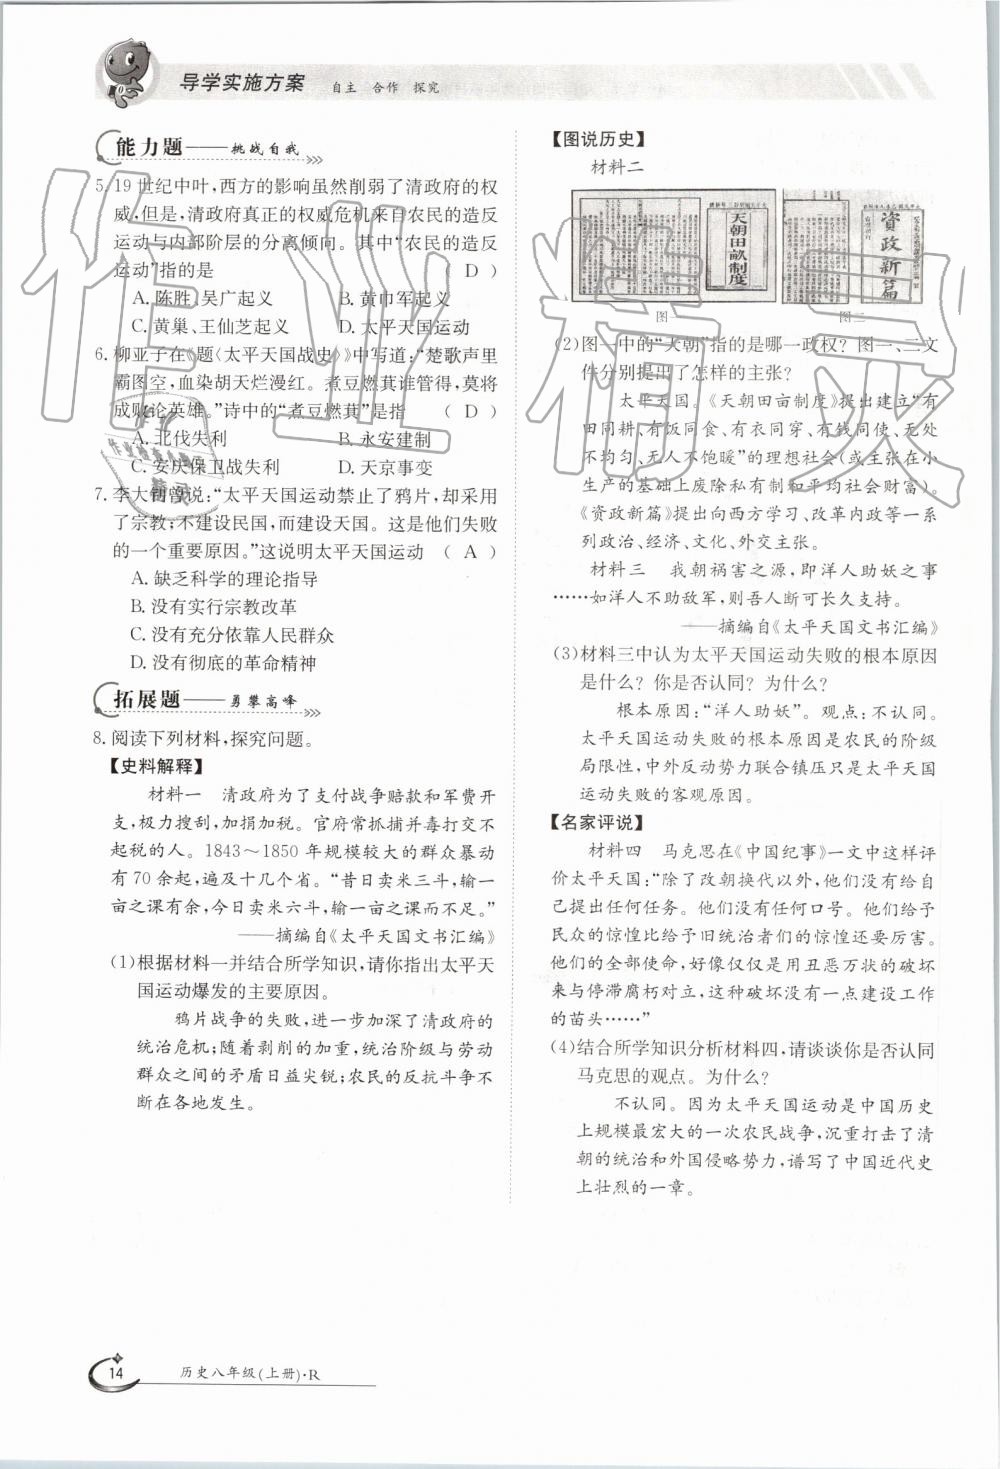 导学实施方案 自主 合作 探究
能力题——挑战自我
5. 19世纪中叶,西方的影响虽然削弱了清政府的权
威,但是,清政府真正的权威危机来自农民的造反
运动与内部阶层的分离倾向。其中“农民的造反
运动”指的是 ( D )
A. 陈胜、吴广起义 B. 黄巾军起义
C. 黄巢、王仙芝起义 D. 太平天国运动
6. 柳亚子在《题〈太平天国战史〉》中写道:“楚歌声里
霸图空,血染胡天烂漫红。煮豆燃萁谁管得,莫将
成败论英雄。”诗中的“煮豆燃萁”是指 ( D )
A. 北伐失利 B. 永安建制
C. 安庆保卫战失利 D. 天京事变
7. 李大钊曾说:“太平天国运动禁止了鸦片,却采用
了宗教;不建设民国,而建设天国。这是他们失败
的一个重要原因。”这说明太平天国运动 ( A )
A. 缺乏科学的理论指导
B. 没有实行宗教改革
C. 没有充分依靠人民群众
D. 没有彻底的革命精神
拓展题——勇攀高峰
8. 阅读下列材料,探究问题。
【史料解释】
材料一 清政府为了支付战争赔款和军费开
支,极力搜刮,加捐加税。官府常抓捕并毒打交不
起税的人。1843～1850年规模较大的群众暴动
有70余起,遍及十几个省。“昔日卖米三斗,输一
亩之课有余,今日卖米六斗,输一亩之课而不足。”
——摘编自《太平天国文书汇编》
(1)根据材料一并结合所学知识,请你指出太平天
国运动爆发的主要原因。
鸦片战争的失败,进一步加深了清政府的
统治危机;随着剥削的加重,统治阶级与劳动
群众之间的矛盾日益尖锐;农民的反抗斗争不
断在各地发生。
【图说历史】
材料二
天朝田亩制度
资政新篇
图一 图二
(2)图一中的“天朝”指的是哪一政权? 图一、二文
件分别提出了怎样的主张?
太平天国。《天朝田亩制度》提出建立“有
田同耕、有饭同食、有衣同穿、有钱同使、无处
不均匀、无人不饱暖”的理想社会(或主张在小
生产的基础上废除私有制和平均社会财富)。
《资政新篇》提出向西方学习、改革内政等一系
列政治、经济、文化、外交主张。
材料三 我朝祸害之源,即洋人助妖之事
……如洋人不助敌军,则吾人断可长久支持。
——摘编自《太平天国文书汇编》
(3)材料三中认为太平天国运动失败的根本原因
是什么? 你是否认同? 为什么?
根本原因:“洋人助妖”。观点:不认同。
太平天国运动失败的根本原因是农民的阶级
局限性,中外反动势力联合镇压只是太平天国
运动失败的客观原因。
【名家评说】
材料四 马克思在《中国纪事》一文中这样评
价太平天国:“除了改朝换代以外,他们没有给自
己提出任何任务。他们没有任何口号。他们给予
民众的惊惶比给予旧统治者们的惊惶还要厉害。
他们的全部使命,好像仅仅是用丑恶万状的破坏
来与停滞腐朽对立,这种破坏没有一点建设工作
的苗头……”
(4)结合所学知识分析材料四,请谈谈你是否认同
马克思的观点。为什么?
不认同。因为太平天国运动是中国历史
上规模最宏大的一次农民战争,沉重打击了清
朝的统治和外国侵略势力,谱写了中国近代史
上壮烈的一章。
14 历史八年级(上册)·R
作业精灵